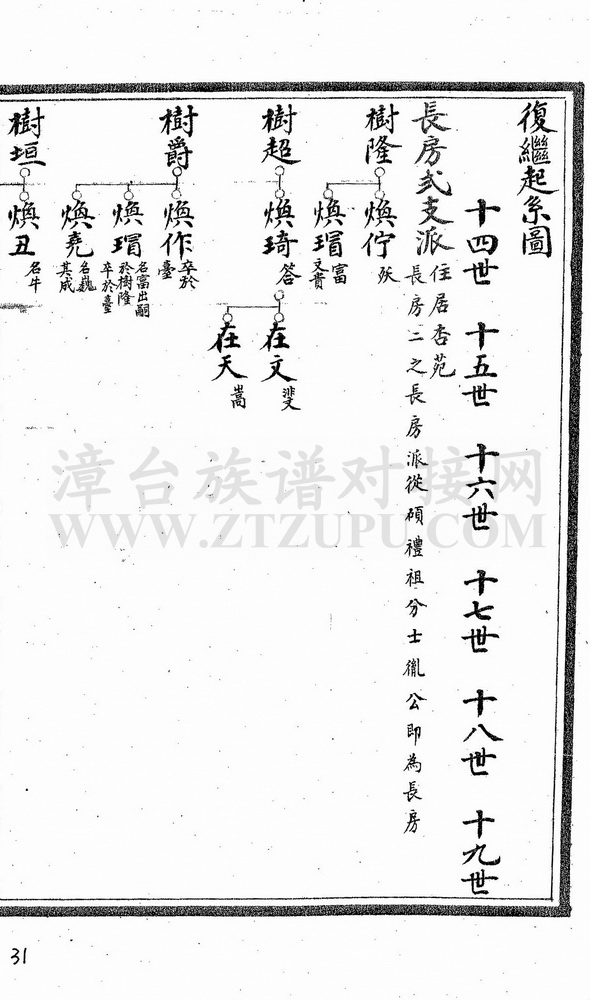 復繼起系圖
十四世 十五世 十六世 十七世 十八世 十九世
長房弍支派
住居杏苑
長房二之長房派從碩禮祖分士胤公即為長房
樹隆
煥佇
殀
煥瑁
富
文貴
樹超
煥琦
答
在文
在天
嵩
樹爵
煥作
卒於
臺
煥瑁
名富出嗣
於樹隆
卒於臺
煥堯
名巍
其成
樹垣
煥丑
名牛
漳台族谱对接网
WWW.ZTZUPU.COM
31